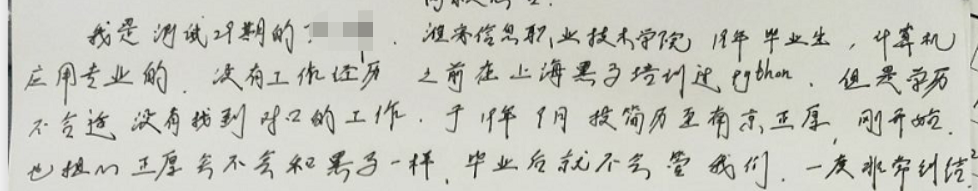 我是测试29期的 . 淮安信息职业技术学院 19年毕业生, 计算机
应用专业的. 没有工作经历 之前在上海黑马培训过python. 但是学历
不合适 没有找到对口的工作. 于19年9月投简历至南京正厚, 刚开始.
也担心正厚会不会和黑马一样, 毕业后就不会管我们, 一度非常纠结